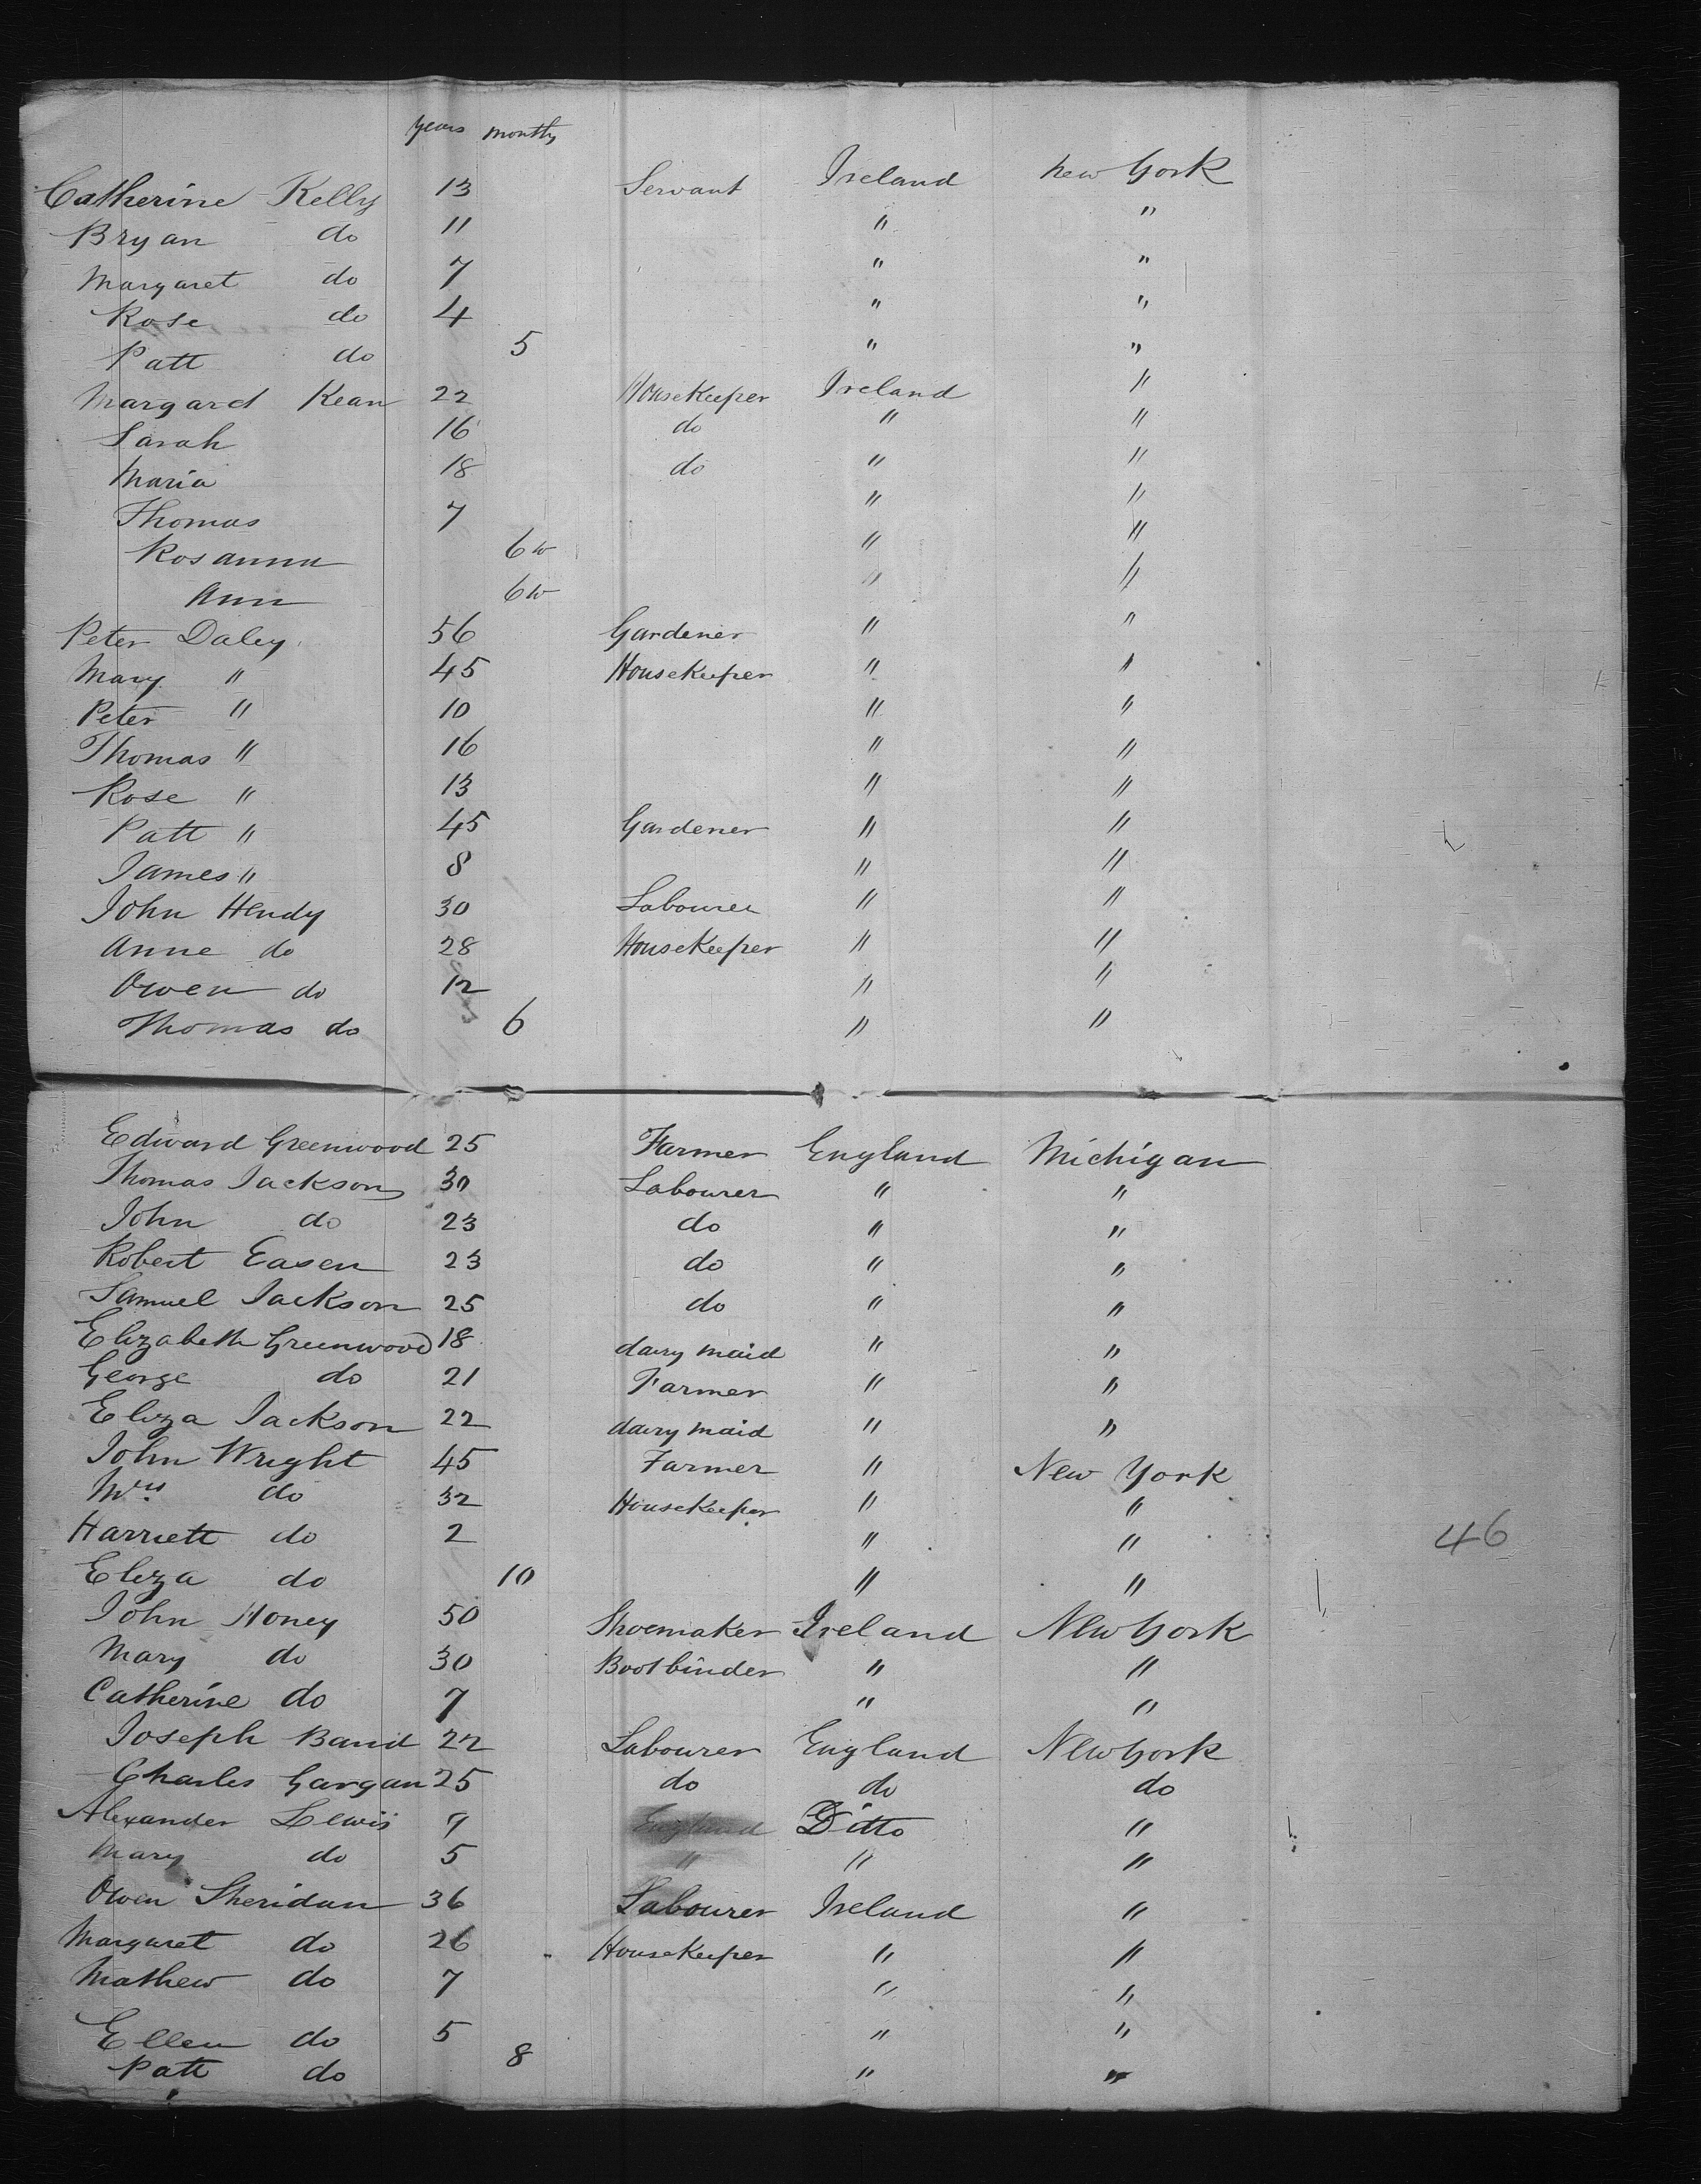 years months
Catherine Kelly 13 Servant Ireland New York
Bryan do 11 " "
Margaret do 7 " "
Rose do 4 " "
Patt do 5 " "
Margard Kean 22 HouseKeeper Ireland "
Sarah 16 do " "
Maria 18 do " "
Thomas 7 " "
Rosanna 6w " "
Ann 6w " "
Peter Daley 56 Gardener " "
Mary " 45 HouseKeeper " "
Peter " 10 " "
Thomas " 16 " "
Rose " 13 " "
Patt " 45 Gardener " "
James " 8 " "
John Hendy 30 Labourer " "
Anne do 28 HouseKeeper " "
Owen do 12 " "
Thomas do 6 " "
Edward Greenwood 25 Farmer England Michigan
Thomas Jackson 30 Labourer " "
John do 23 do " "
Robert Easen 23 do " "
Samuel Jackson 25 do " "
Elizabeth Greenwood 18 dairy maid " "
George do 21 Farmer " "
Eliza Jackson 22 dairy maid " "
John Wright 45 Farmer " New York
Mrs do 32 HouseKeeper " "
Harriett do 2 " "
46
Eliza do 10 " "
John Honey 50 Shoemaker Ireland New York
Mary do 30 Bootbinder " "
Catherine do 7 " "
Joseph Band 22 Labourer England New York
Charles Gargan 25 do do do
Alexander Lewis 7 England Ditto "
Mary do 5 " " "
Owen Sheridan 36 Labourer Ireland "
Margaret do 26 HouseKeeper " "
Mathew do 7 " "
Ellen do 5 " "
Patt do 8 " "